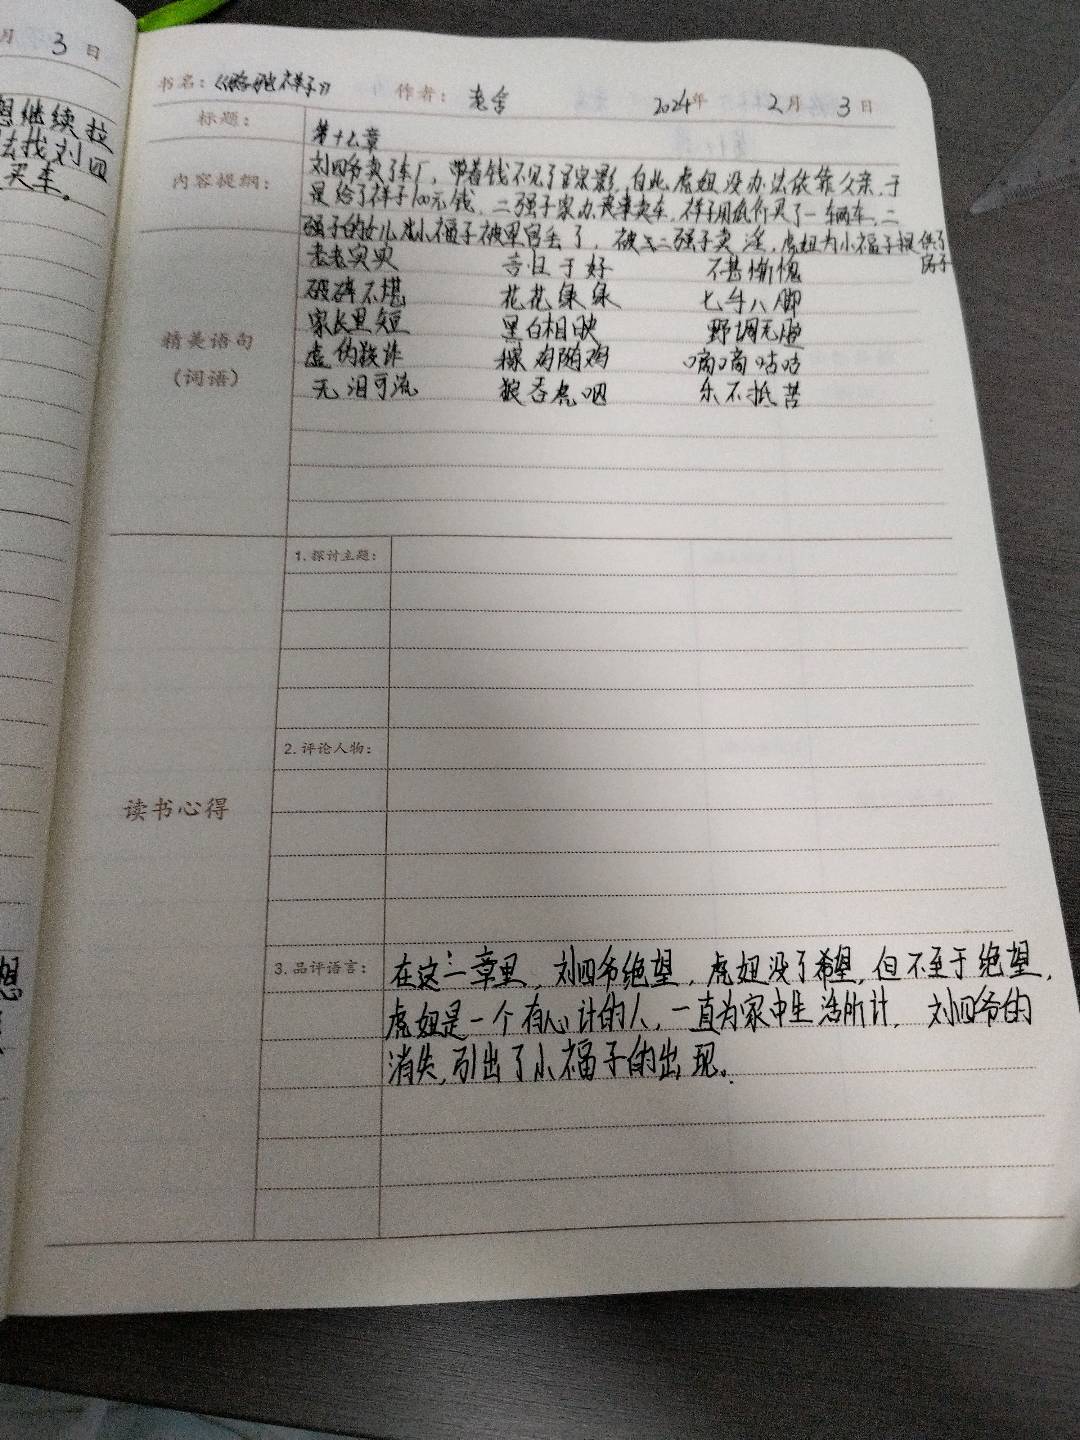 月 3 日
想继续拉
去找刘四
买车。
想
书名：《骆驼祥子》 作者：老舍 2024年 2月 3日
标题：
第十七章
内容提纲：
刘四爷卖了车厂，带着钱不见了踪影，自此虎妞没办法依靠父亲，于
是给了祥子100元钱，二强子家办丧事卖车，祥子用低价买了一辆车，二
强子的女儿小福子被军官丢了，被二强子卖淫，虎妞为小福子提供了
房子
精美语句
（词语）
老老实实 言归于好 不甚惭愧
破碎不堪 花花绿绿 七手八脚
家长里短 黑白相映 野调无腔
虚伪狡诈 嫁鸡随鸡 嘀嘀咕咕
无泪可流 狼吞虎咽 乐不抵苦
读书心得
1. 探讨主题：
2. 评论人物：
3. 品评语言：
在这一章里，刘四爷绝望，虎妞没了希望，但不至于绝望，
虎妞是一个有心计的人，一直为家中生活所计，刘四爷的
消失，引出了小福子的出现。